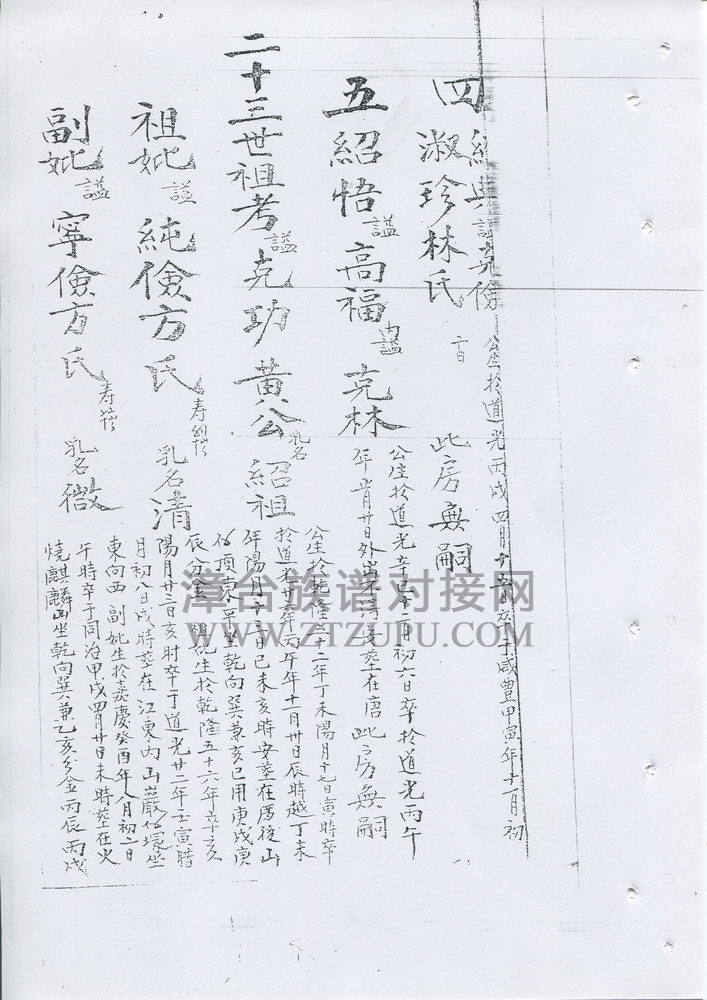 四 淑珍林氏 十日 此房無嗣
公生於道光丙戌四月廿五日卒于咸豊甲寅年十一月初
五紹悟謚高福 内謚 克林
公生於道光辛巳十二月初六日卒於道光丙午
年正月廿日外出 葬在唐 此房無嗣
二十三世祖考謚克功黄公 乳名紹祖
公生於乾隆五十二年丁未陽月十七日寅時卒
於道光廿六年丙午年十一月卅日辰時越丁未
年陽月十二日己未亥時安葬在厝後山
仔頂東平坐乾向巽兼亥巳用庚戌庚
辰分金 妣生於乾隆五十六年辛亥
祖妣謚純儉方氏 寿 乳名清
陽月廿二日亥时卒于道光廿二年壬寅時
月初八日戌時葬在江東内山巖仔壠坐
東向西 副妣生於嘉慶癸酉年八月初二日
副妣謚寧儉方氏 寿 乳名微
午時卒于同治甲戌四月廿日未時葬在火
燒麒麟山坐乾向巽兼乙亥分金丙辰丙戌
漳台族谱对接网
WWW.ZTZUPU.COM